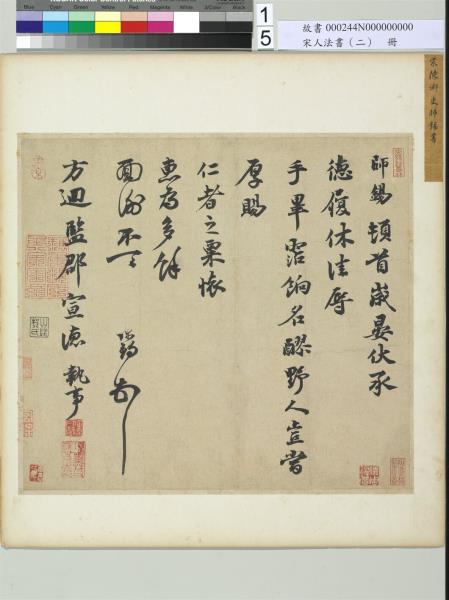 Blue Cyan Green Yellow Red Magenta White 3/Color Black
1
5
故書 000244N000000000
宋人法書（二） 冊
宋陳御史師錫書
師錫頓首歲晏伏承
德履休佳辱
手畢寵餉名醪野人豈當
厚賜
仁者之粟懷
惠為多餘
面謝不一
師錫
方迴監郡宣德執事